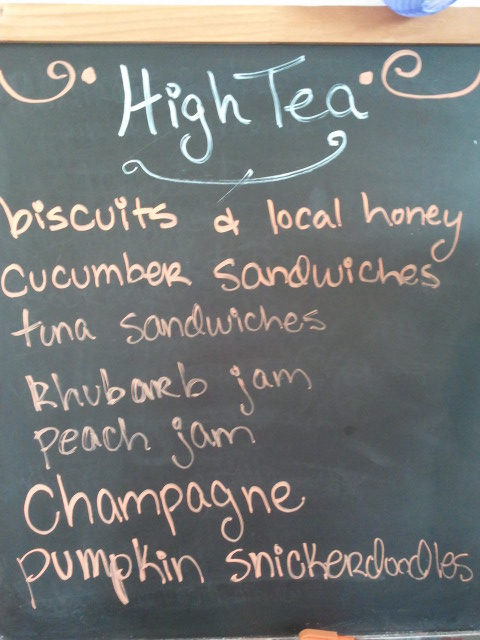 High Tea
biscuits & local honey
cucumber sandwiches
tuna sandwiches
Rhubarb jam
peach jam
Champagne
pumpkin snickerdoodles